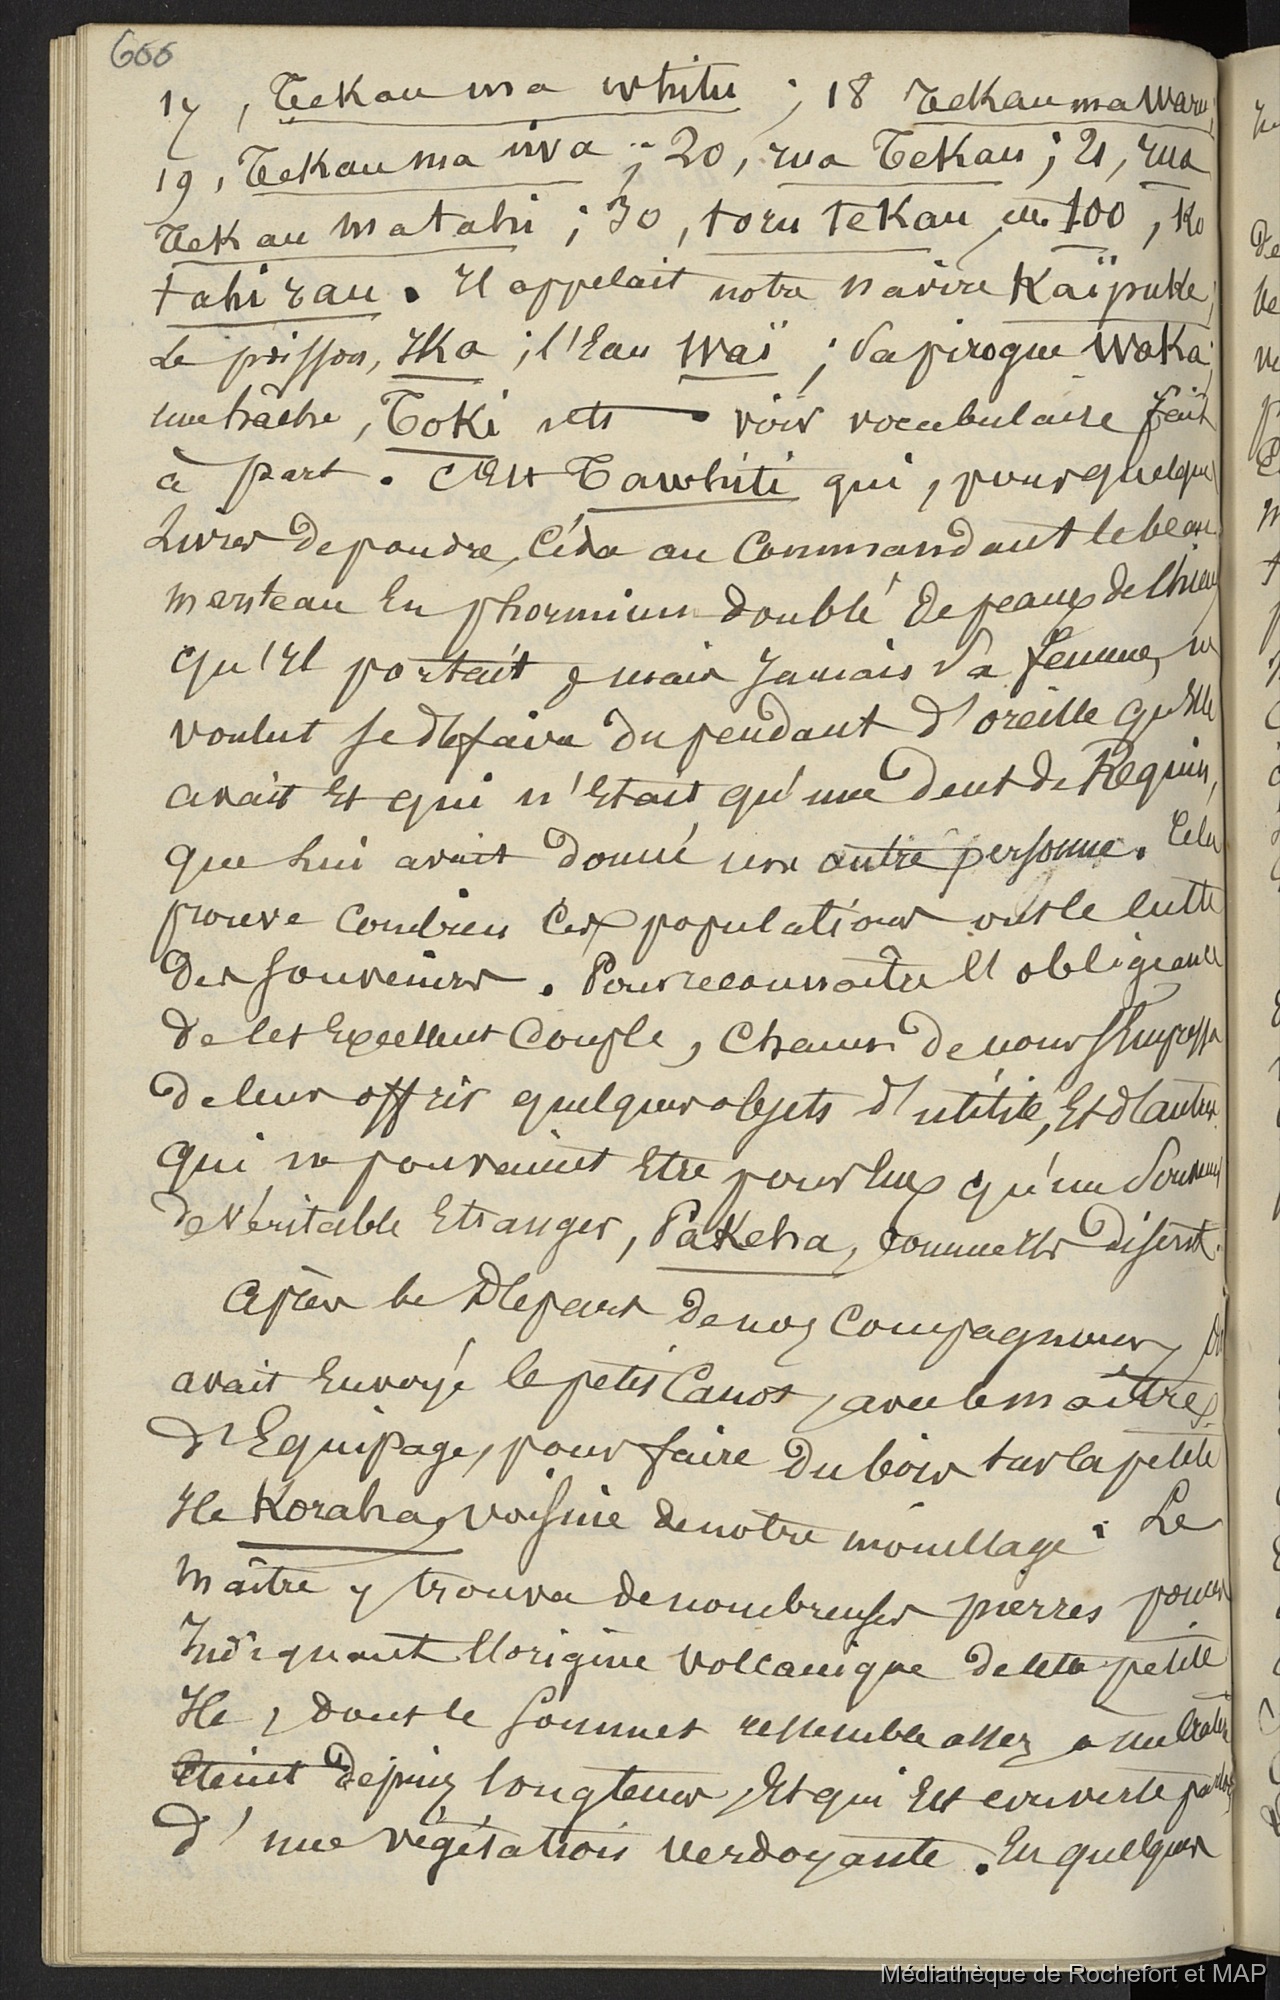 666
17, Tekau ma whitu ; 18 Tekau ma Waru;
19, Tekau ma iva ; 20, rua Tekau ; 21, rua
Tekau ma tahi ; 30, toru tekau, 100, Ko
tahi rau. Il appelait notre navire Kaïpuke,
Le poisson, Ika ; l'Eau Waï ; sa pirogue Waka;
une hache, Toki etc voir vocabulaire fait
à part. C'Est Tawhiti qui, pour quelques
Livres de poudre, Céda au Commandant le beau
manteau En phormium doublé de peaux de Chien
qu'Il portait, mais Jamais sa femme, ne
voulut se défaire du pendant d'oreille qu'Elle
avait Et qui n'Etait qu'une dent de Requin,
que Lui avait donné une autre personne. Cela
prouve Combien Ces populations ont le culte
des souvenirs. Pour reconnaître l'obligeance
de cet Excellent Couple, Chacun de nous s'Empressa
de leur offrir quelques objets d'utilité, Et d'autres
qui ne pouvaient Etre pour Eux qu'un souvenir
de véritable Etranger, Pakeha, comme Ils disent.
Après le Départ de nos Compagnons, on
avait Envoyé le petit Canot, avec le maître
d'Equipage, pour faire du bois sur la petite
Ile Koraha, voisine de notre mouillage. Le
maître y trouva de nombreuses pierres ponces
Indiquant l'origine volcanique de cette petite
Ile, dont le sommet ressemble assez a un Cratère
Eteint depuis longtems, Et qui Est couverte partout
d'une végétation verdoyante. En quelques
Médiathèque de Rochefort et MAP